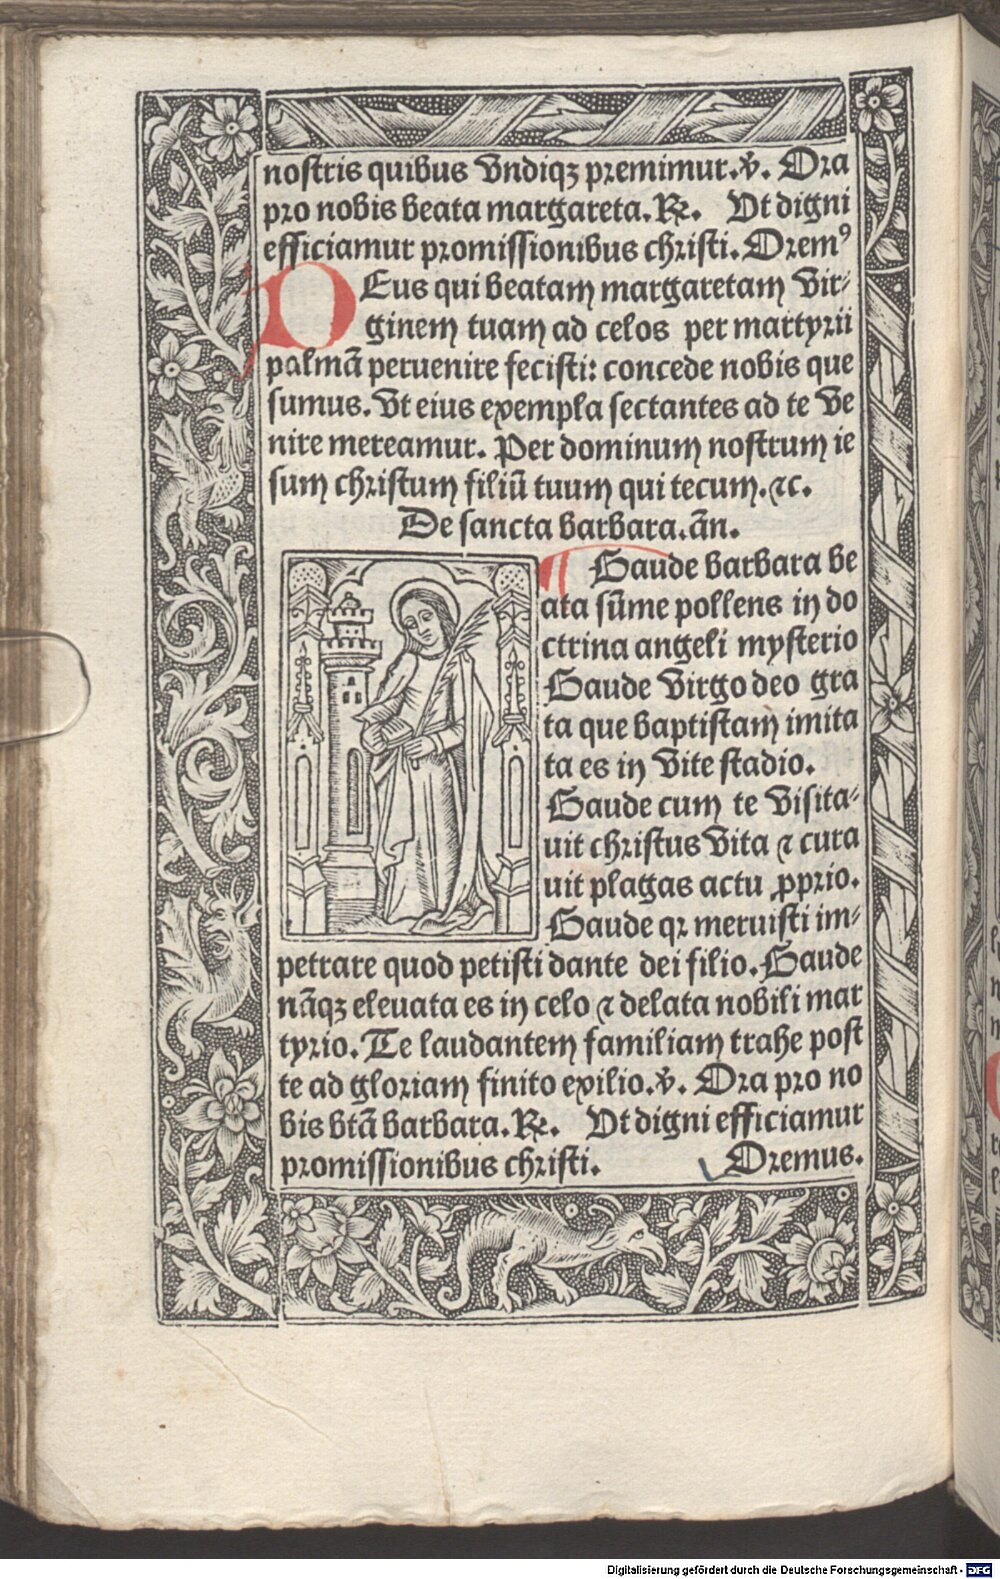 nostris quibus vndiqꝫ premimur. ℣. Ora
pro nobis beata margareta. ℟. Vt digni
efficiamur promissionibus christi. Oremꝰ
DEus qui beatam margaretam vir-
ginem tuam ad celos per martyrii
palmā peruenire fecisti: concede nobis que
sumus. vt eius exempla sectantes ad te ve
nire mereamur. Per dominum nostrum ie
sum christum filiū tuum qui tecum. ⁊c.
De sancta barbara. an̄.
¶ Gaude barbara be
ata sūme pollens in do
ctrina angeli mysterio
Gaude virgo deo gra
ta que baptistam imita
ta es in vite stadio.
Gaude cum te visita-
uit christus vita ⁊ cura
uit plagas actu ꝓprio.
Gaude qꝛ meruisti im-
petrare quod petisti dante dei filio. Gaude
nāqꝫ eleuata es in celo ⁊ delata nobili mar
tyrio. Te laudantem familiam trahe post
te ad gloriam finito exilio. ℣. Ora pro no
bis btā barbara. ℟. Vt digni efficiamur
promissionibus christi. Oremus.
Digitalisierung gefördert durch die Deutsche Forschungsgemeinschaft - DFG